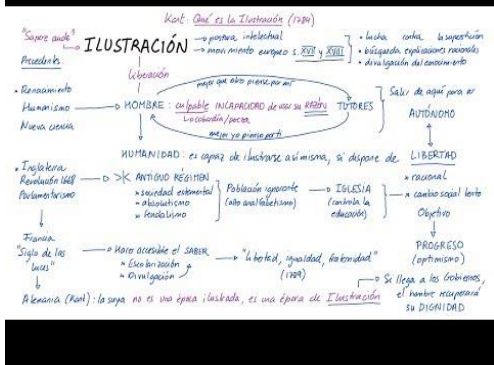 Kant: Qué es la Ilustración (1784)
"Sapere aude"
ILUSTRACIÓN
→ postura intelectual
→ movimiento europeo s. XVII y XVIII
• lucha contra la superstición
• búsqueda explicaciones racionales
• divulgación del conocimiento
Precedentes:
liberación
• Renacimiento
Humanismo
Nueva ciencia
mejor que otro piense por mí
HOMBRE: culpable INCAPACIDAD de usar su RAZÓN
↳ cobardía/pereza
TUTORES
mejor yo pienso por ti
Salir de aquí para ser
AUTÓNOMO
HUMANIDAD: es capaz de ilustrarse a sí misma, si dispone de LIBERTAD
• Inglaterra
Revolución 1688
Parlamentarismo
ANTIGUO RÉGIMEN
* sociedad estamental
* absolutismo
* feudalismo
Población ignorante
(alto analfabetismo)
→ IGLESIA
(controla la
educación)
* racional
* cambio social lento
Objetivo
PROGRESO
(optimismo)
Francia
"Siglo de las
luces"
→ Hace accesible el SABER
* Escolarización
* Divulgación
→ "libertad, igualdad, fraternidad"
(1789)
→ Si llega a los Gobiernos,
el hombre recuperará
su DIGNIDAD
Alemania (Kant): la suya no es una época ilustrada, es una época de Ilustración